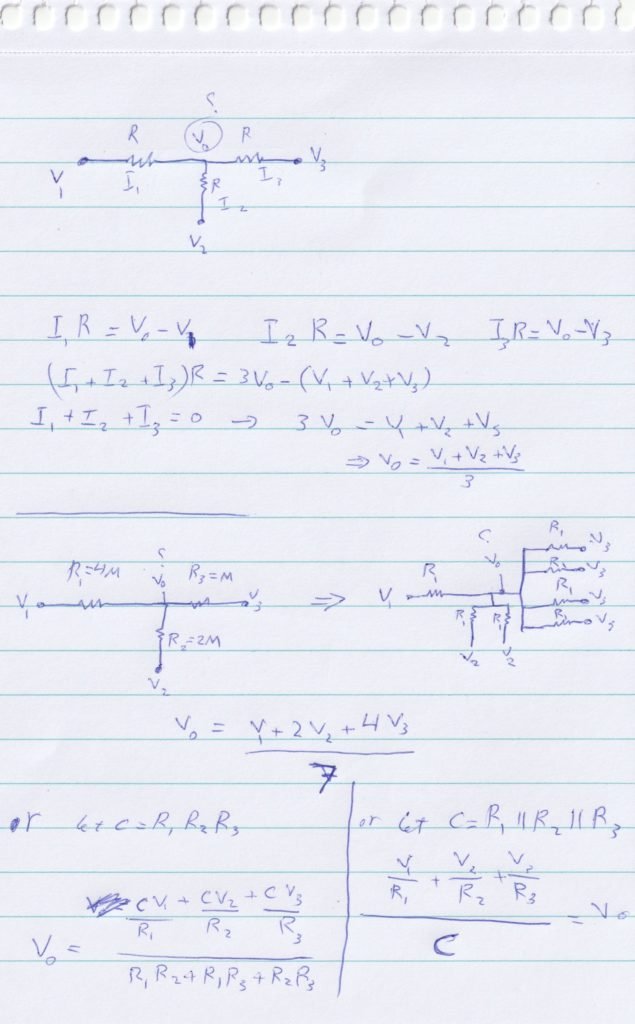 ?
R V₀ R
V₁ I₁ R I₃ V₃
I₂
V₂
I₁R = V₀ - V₁ I₂ R = V₀ - V₂ I₃R = V₀ - V₃
(I₁ + I₂ + I₃)R = 3V₀ - (V₁ + V₂ + V₃)
I₁ + I₂ + I₃ = 0 → 3 V₀ = V₁ + V₂ + V₃
⇒ V₀ = (V₁ + V₂ + V₃) / 3
?
R₁=4M V₀ R₃=M
V₁ V₃
R₂=2M
V₂
⇒
?
V₀
V₁ R₁
R₁ R₁
V₂ V₂
R₁ V₃
R₁ V₃
R₁ V₃
R₁ V₃
V₀ = (V₁ + 2V₂ + 4V₃) / 7
or let C = R₁ R₂ R₃
V₀ = (CV₁/R₁ + CV₂/R₂ + CV₃/R₃) / (R₁R₂ + R₁R₃ + R₂R₃)
or let C = R₁ || R₂ || R₃
(V₁/R₁ + V₂/R₂ + V₃/R₃) / C = V₀